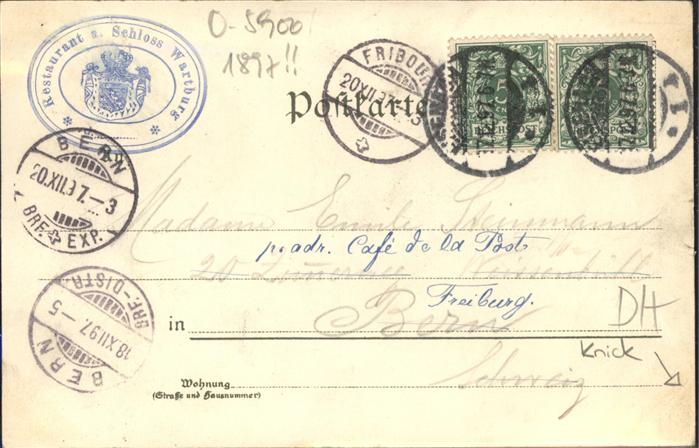 Restaurant a. Schloss Wartburg
O-5900
1897!!
FRIBOURG
20.XII.97
Postkarte
REICHSPOST
REICHSPOST
BERN
20.XII.97.-3
BRF. EXP.
Madame Emile Steinmann
p. adr. Café de la Poste
20
Freiburg.
DH
in Bern
BERN
18.XII.97.-5
BRF-DISTR.
Knick
Schweiz
Wohnung
(Straße und Hausnummer)